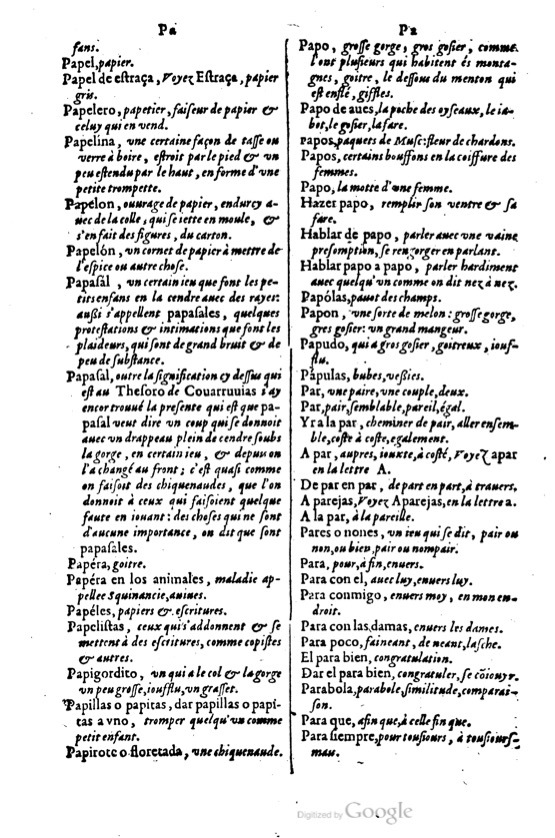 Pa
fans.
Papel, papier.
Papel de estraça, Voyez Estraça, papier
gris.
Papelero, papetier, faiseur de papier &
celuy qui en vend.
Papelina, vne certaine façon de tasse ou
verre à boire, estroit par le pied & vn
peu estendu par le haut, en forme d'vne
petite trompette.
Papelon, ouurage de papier, endurcy a-
uec de la colle, qui se iette en moule, &
s'en fait des figures, du carton.
Papelón, vn cornet de papier à mettre de
l'espice ou autre chose.
Papasal, vn certain ieu que font les pe-
tits enfans en la cendre auec des rayes:
aussi s'appellent papasales, quelques
protestations & intimations que font les
plaideurs, qui sont de grand bruit & de
peu de substance.
Papasal, outre la signification cy dessus qui
est au Thesoro de Couarruuias i'ay
encor trouué la presente qui est que pa-
pasal veut dire vn coup qui se donnoit
auec vn drappeau plein de cendre soubs
la gorge, en certain ieu, & depuis on
l'a changé au front; c'est quasi comme
on faisoit des chiquenaudes, que l'on
donnoit à ceux qui faisoient quelque
faute en iouant: des choses qui ne sont
d'aucune importance, on dit que sont
papasales.
Papéra, goitre.
Papéra en los animales, maladie ap-
pellee Squinancie, auiues.
Papéles, papiers & escritures.
Papelistas, ceux qui s'addonnent & se
mettent à des escritures, comme copistes
& autres.
Papigordito, vn qui a le col & la gorge
vn peu grosse, iouflu, vn grasset.
Papillas o papitas, dar papillas o papi-
tas a vno, tromper quelqu'vn comme
petit enfant.
Papirote o floretada, vne chiquenaude.
Pa
Papo, grosse gorge, gros gosier, comme
l'ont plusieurs qui habitent és monta-
gnes, goitre, le dessous du menton qui
est enflé, giffles.
Papo de aues, la poche des oyseaux, le ia-
bot, le gosier, la fare.
Papos, paquets de Musc: fleur de chardons.
Papos, certains bouffons en la coiffure des
femmes.
Papo, la motte d'vne femme.
Hazer papo, remplir son ventre & sa
fare.
Hablar de papo, parler auec vne vaine
presomption, se rengorger en parlant.
Hablar papo a papo, parler hardiment
auec quelqu'vn comme on dit nez à nez.
Papólas, pauot des champs.
Papon, vne sorte de melon: grosse gorge,
gros gosier: vn grand mangeur.
Papudo, qui a gros gosier, goitreux, iouf-
flu.
Pápulas, bubes, vessies.
Par, vne paire, vne couple, deux.
Par, pair, semblable, pareil, égal.
Yr a la par, cheminer de pair, aller ensem-
ble, coste à coste, egalement.
A par, aupres, iouxte, à costé, Voyez apar
en la lettre A.
De par en par, de part en part, à trauers.
A parejas, Voyez Aparejas, en la lettre a.
A la par, à la pareille.
Pares o nones, vn ieu qui se dit, pair ou
non, ou bien, pair ou nompair.
Para, pour, à fin, enuers.
Para con el, auec luy, enuers luy.
Para conmigo, enuers moy, en mon en-
droit.
Para con las damas, enuers les dames.
Para poco, faineant, de neant, lasche.
El para bien, congratulation.
Dar el para bien, congratuler, se cōiouyr.
Parabola, parabole, similitude, comparai-
son.
Para que, afin que, à celle fin que.
Para siempre, pour tousiours, à tousiours-
mau.
Digitized by Google